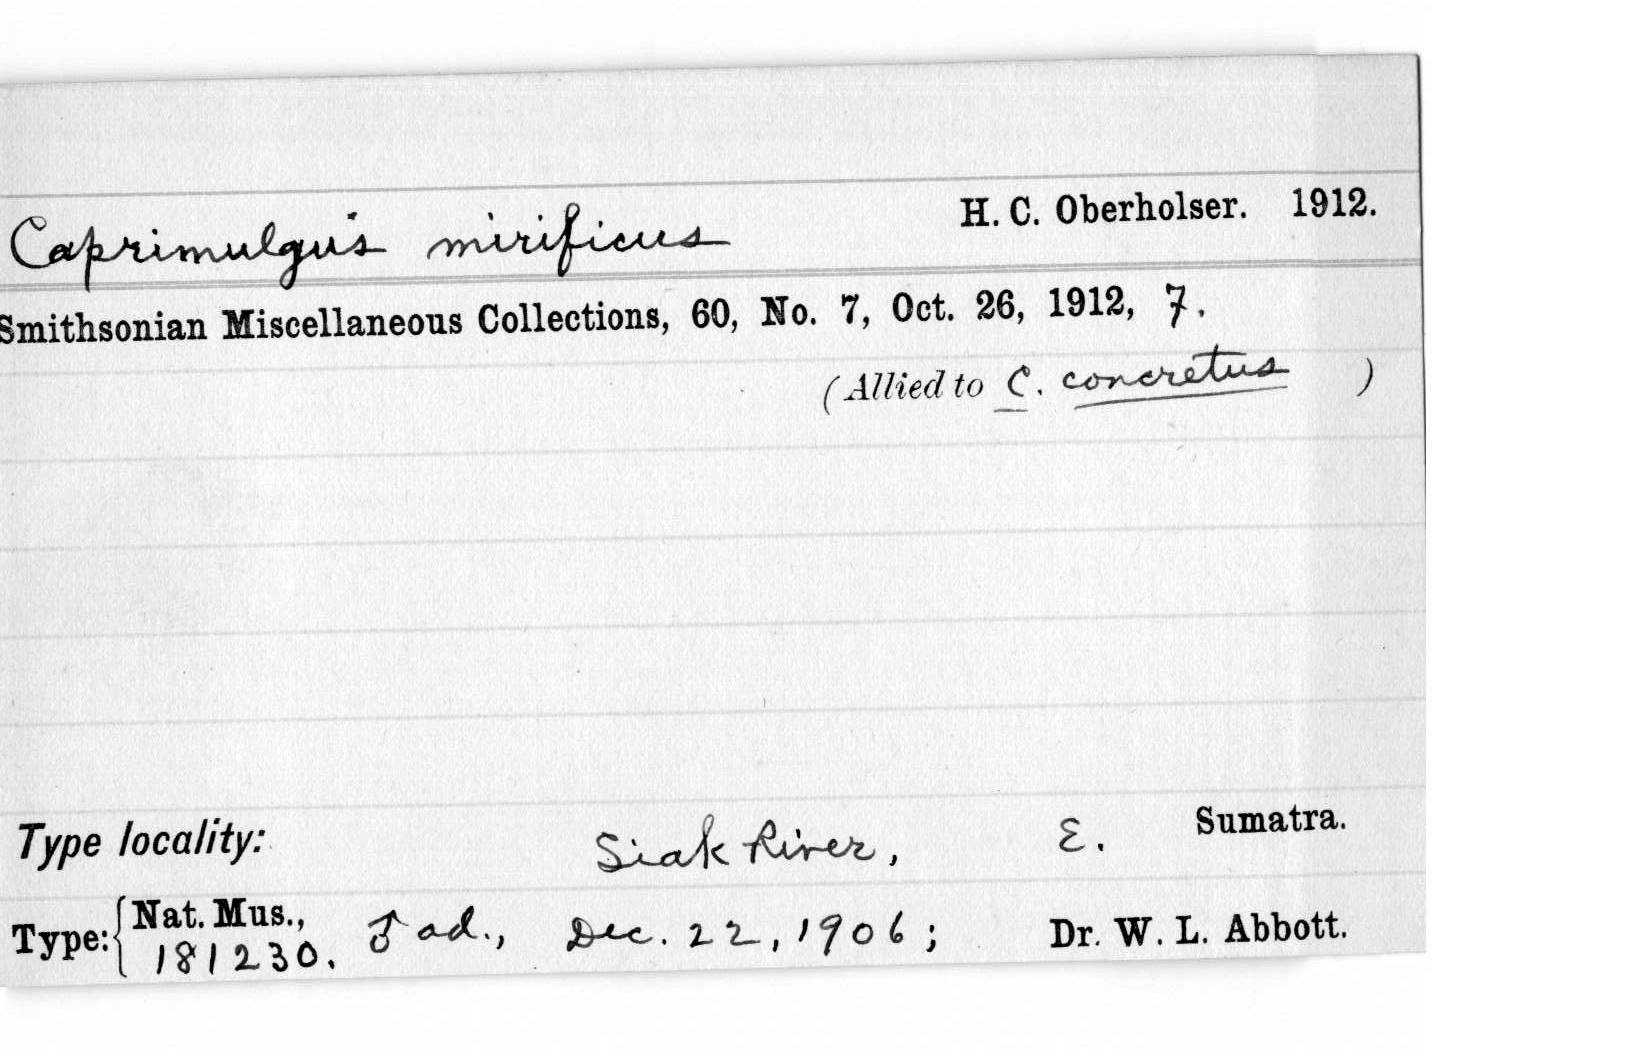 Caprimulgus mirificus H. C. Oberholser. 1912.
Smithsonian Miscellaneous Collections, 60, No. 7, Oct. 26, 1912, 7.
(Allied to C. concretus )
Type locality: Siak River, E. Sumatra.
Type: { Nat. Mus., ♂ ad., Dec. 22, 1906; Dr. W. L. Abbott.
181230.